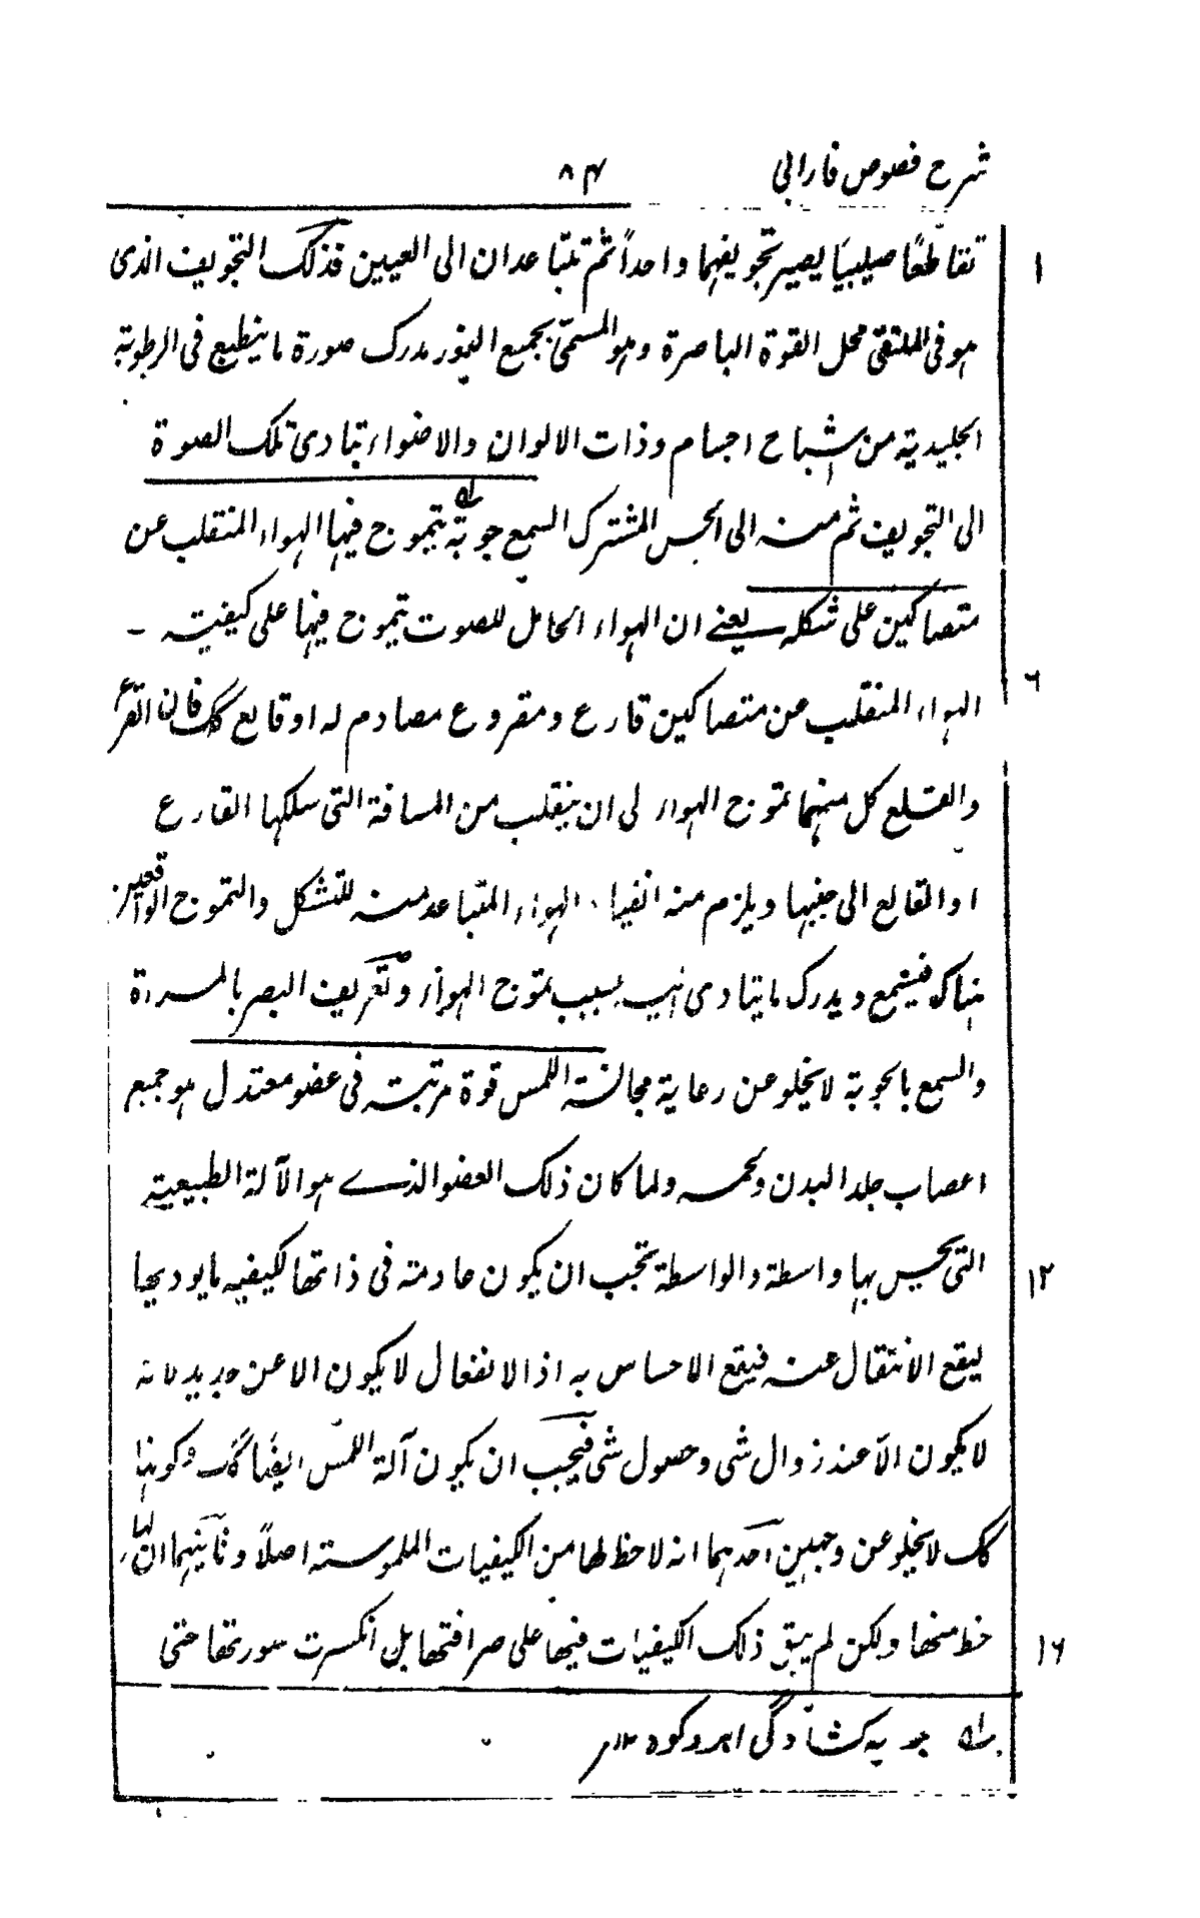 شرح فصوص فارابی ۸۴
تقاطعًا صلیبیًا یصیر تجویفہما واحداً ثم تتباعدان الی العیین فذلک التجویف الذی
ہو فی الملتقی محل القوۃ الباصرۃ وہو المسمّی بجمیع النور مدرک صورۃ ما ینطبع فی الرطوبۃ
الجلیدیۃ من اشباح اجسام وذات الالوان والاضواء تبادی تلک الصوۃ
الی التجویف ثم منہ الی الحس المشترک السمع جوبۃ یتموج فیہا الہواء المنقلب عن
متصاکین علی شکلہ یعنے ان الہواء الحامل للصوت یتموج فیہا علی کیفیتہ -
الہواء المنقلب من متصاکین قارع ومقروع مصادم لہ او قالع کک فان القرع
والقلع کل منہما تموج الہواء لی ان ینقلب من المسافۃ التی سلکہا القارع
او القالع الی جنبہا ویلزم منہ انقیاد الہواء المتباعد منہ للتشکل والتموج الواقعین
ہناک فیسمع ویدرک ما یتادی الیہ بسبب تموج الہواء وتعریف البصر بالمسراۃ
والسمع بالجوبۃ لا یخلو عن رعایۃ مجانسۃ اللمس قوۃ مرتبتہ فی عضو معتدل ہو جمیع
اعصاب جلد البدن ولحمہ ولما کان ذلک العضو الذے ہو الآلۃ الطبیعیۃ
التی یحس بہا واسطۃ والواسطۃ تجب ان یکون عادمتہ فی ذاتھا لکیفیہ ما یودیھا
لیقع الانتقال عنہ فیقع الاحساس بہ اذ الانفعال لا یکون الا عن جدید لانہ
لا یکون الاّ عند زوال شی وحصول شی فیجب ان یکون آلۃ اللمس ایضًا کک وکونہا
کک لا یخلو عن وجہین احدہما انہ لا حظ لھا من الکیفیات الملموستہ اصلاً وثانیہما ان لہا
حظ منھا ولکن لم یبق ذلک الکیفیات فیھا علی صرافتھا بل انکسرت سورتھا حتی
لہ جوبہ کشادگی ابر وکوہ ۱۲
۱
۶
۱۲
۱۶